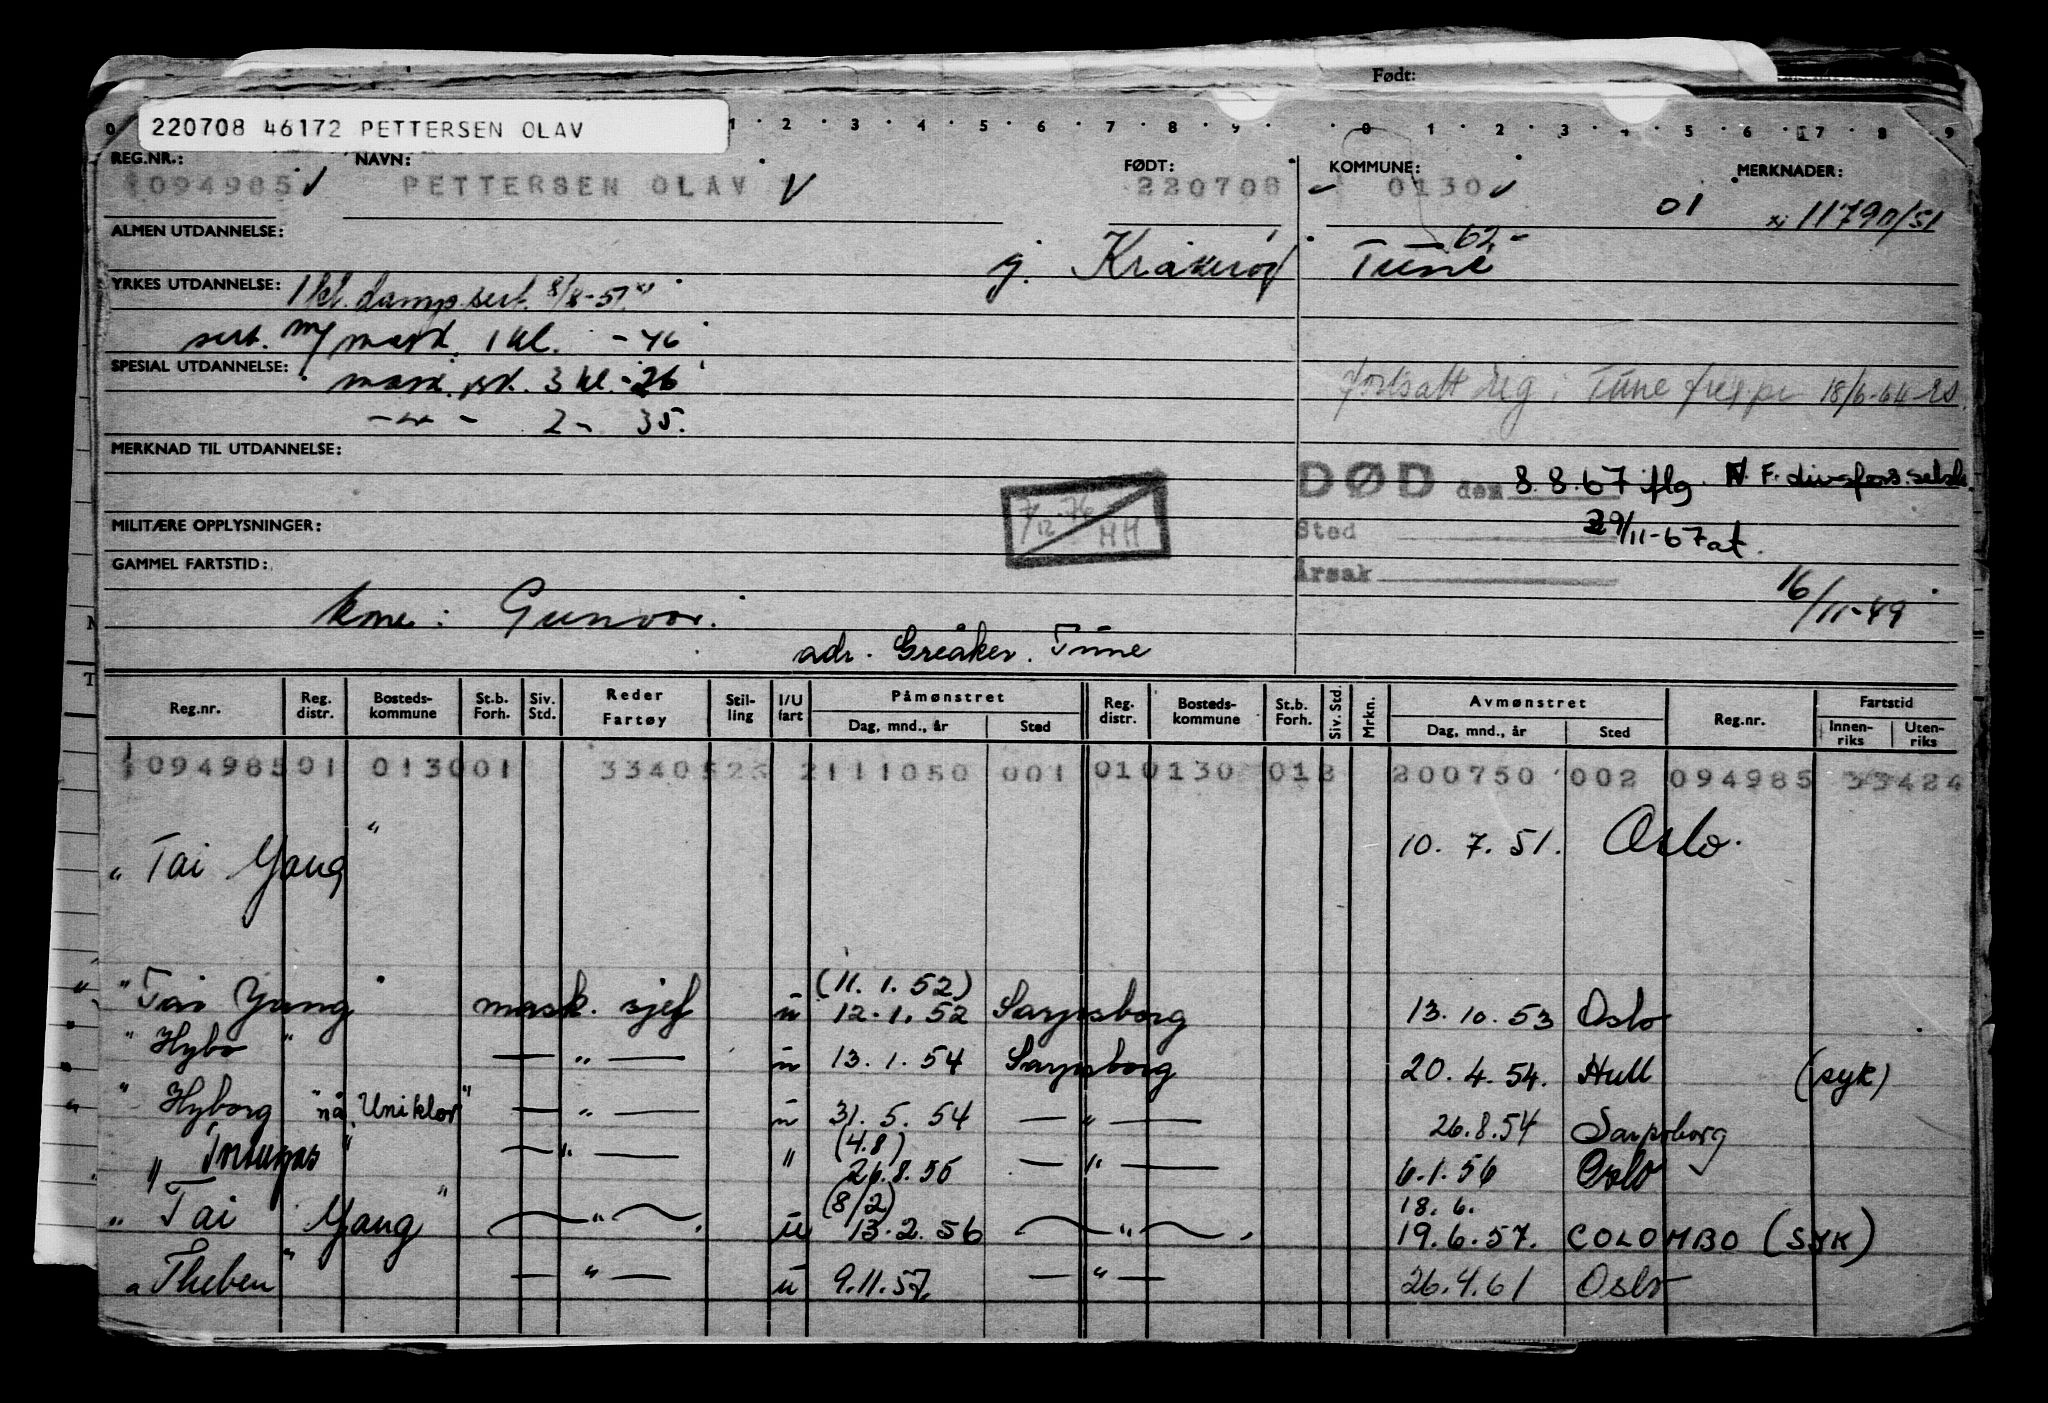 Født:
220708 46172 PETTERSEN OLAV
0 1 2 3 4 5 6 7 8 9 0 1 2 3 4 5 6 7 8 9
REG.NR.: NAVN: FØDT: KOMMUNE: MERKNADER:
094985 PETTERSEN OLAV 220708 0130
01 11790/51
ALMEN UTDANNELSE:
62-
g. Kråkerøy Tune
YRKES UTDANNELSE: 1 kl. damp sert. 8/8-51
sert. m/ mask. 1 kl. -46
SPESIAL UTDANNELSE: mask. 3 kl. -26
fortsatt reg i Tune 18/6-64
-"- 2- 35.
MERKNAD TIL UTDANNELSE:
DØD den 8.8.67 iflg. N.F. livsfors.selsk.
7/12-76 HH
MILITÆRE OPPLYSNINGER:
Sted 29/11-67 at.
GAMMEL FARTSTID:
Årsak
kone: Gunvor.
16/11-49
adr. Greåker. Tune
Reg.nr. Reg. distr. Bosteds-kommune St.b. Forh. Siv. Std. Reder Fartøy Stil-ling I/U fart Påmønstret Dag, mnd., år Sted Reg. distr. Bosteds-kommune St.b. Forh. Siv. Std. Mrkn. Avmønstret Dag, mnd., år Sted Reg.nr. Fartstid Innen-riks Uten-riks
09498501 013001 3340523 2111050 001 010130 012 200750 002 094985 33424
" Tai Yang " 10. 7. 51. Oslo.
(11. 1. 52)
" Tai Yang " mask. sjef u 12.1.52 Sarpsborg 13.10.53 Oslo
" Hybo " — " — u 13.1.54 Sarpsborg 20.4.54. Hull (syk)
" Hyborg "nå Uniklor" — " — u 31.5.54 — " — 26.8.54 Sarpsborg
(4.8)
" " — " — " 26.8.55 — " — 6.1.56 Oslo
(8/2) 18.6.
" Tai Yang " — " — u 13.2.56 — " — 19.6.57. COLOMBO (SYK)
" Theben " — " — u 9.11.57. — " — 26.4.61 Oslo